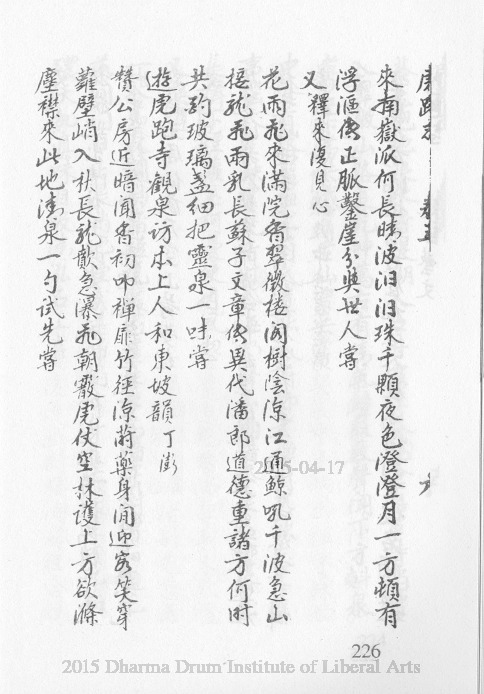 來南嶽派何長晴波汨汨珠千顆夜色澄澄月一方頓有
浮漚傳正脈鑿崖分與世人嘗
又 釋來復見心
花雨飛來滿院香翠微樓閣樹陰涼江通鯨吼千波急山
接龍飛兩乳長蘇子文章傳異代潘郎道德重諸方何時
共酌玻璃盞細把靈泉一味嘗
遊虎跑寺觀泉訪本上人和東坡韻 丁澎
贊公房近暗聞香初叩禪扉竹徑涼蒔藥身閒迎客笑穿
蘿壁峭入秋長龍歕急瀑飛朝霰虎伏空林護上方欲滌
塵襟來此地清泉一勺試先嘗
226
2015-04-17
2015 Dharma Drum Institute of Liberal Arts